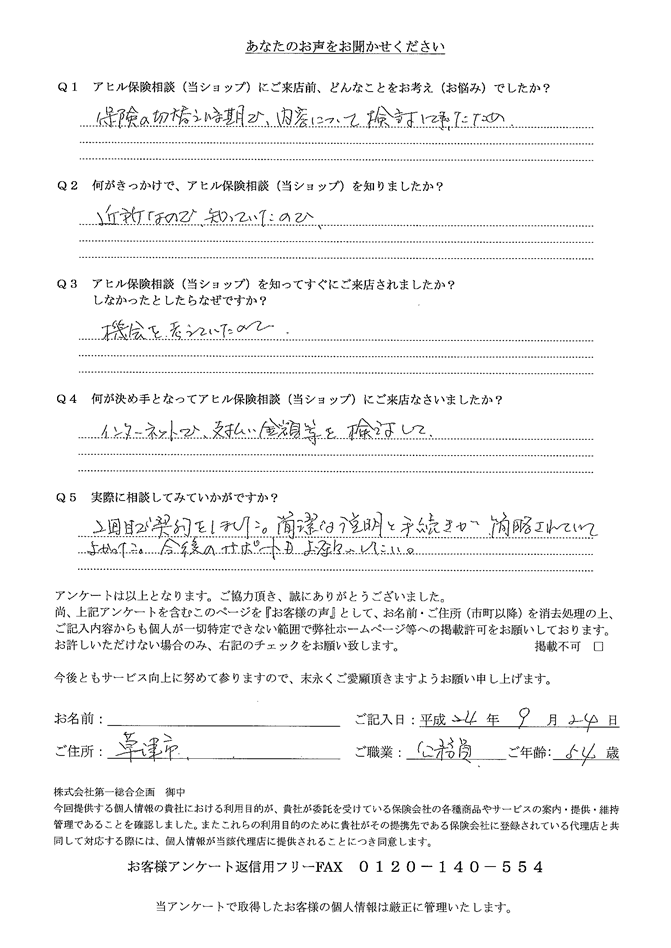 あなたのお声をお聞かせください
Q1 アヒル保険相談（当ショップ）にご来店前、どんなことをお考え（お悩み）でしたか？
保険の切替え時期で、内容について検討して来たため.
Q2 何がきっかけで、アヒル保険相談（当ショップ）を知りましたか？
近所なので、知っていたので、
Q3 アヒル保険相談（当ショップ）を知ってすぐにご来店されましたか？
しなかったとしたらなぜですか？
機会を考えていたので.
Q4 何が決め手となってアヒル保険相談（当ショップ）にご来店なさいましたか？
インターネットで、支払い金額等を検討して、
Q5 実際に相談してみていかがですか？
2回目で契約をしました。簡潔な説明と手続きが簡略されていて
よかった。今後のサポートもお願いしたい。
アンケートは以上となります。ご協力頂き、誠にありがとうございました。
尚、上記アンケートを含むこのページを『お客様の声』として、お名前・ご住所（市町以降）を消去処理の上、
ご記入内容からも個人が一切特定できない範囲で弊社ホームページ等への掲載許可をお願いしております。
お許しいただけない場合のみ、右記のチェックをお願い致します。 掲載不可 □
今後ともサービス向上に努めて参りますので、末永くご愛顧頂きますようお願い申し上げます。
お名前： ご記入日：平成 24 年 9 月 24 日
ご住所： 草津市 ご職業： 公務員 ご年齢： 54 歳
株式会社第一総合企画 御中
今回提供する個人情報の貴社における利用目的が、貴社が委託を受けている保険会社の各種商品やサービスの案内・提供・維持
管理であることを確認しました。またこれらの利用目的のために貴社がその提携先である保険会社に登録されている代理店と共
同して対応する際には、個人情報が当該代理店に提供されることにつき同意します。
お客様アンケート返信用フリーFAX 0120－140－554
当アンケートで取得したお客様の個人情報は厳正に管理いたします。